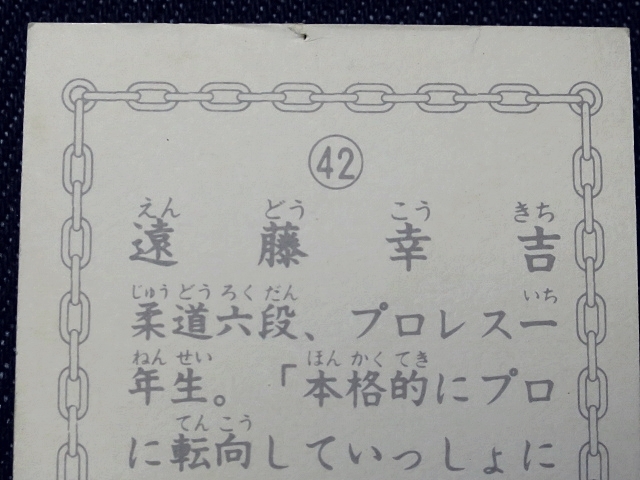 42
えん どう こう きち
遠藤幸吉
じゅう どう ろく だん いち
柔道六段、プロレス一
ねん せい ほん かく てき
年生。「本格的にプロ
てん こう
に転向していっしょに